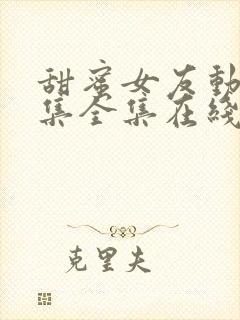 甜蜜女友動
集全集在綫
克里夫